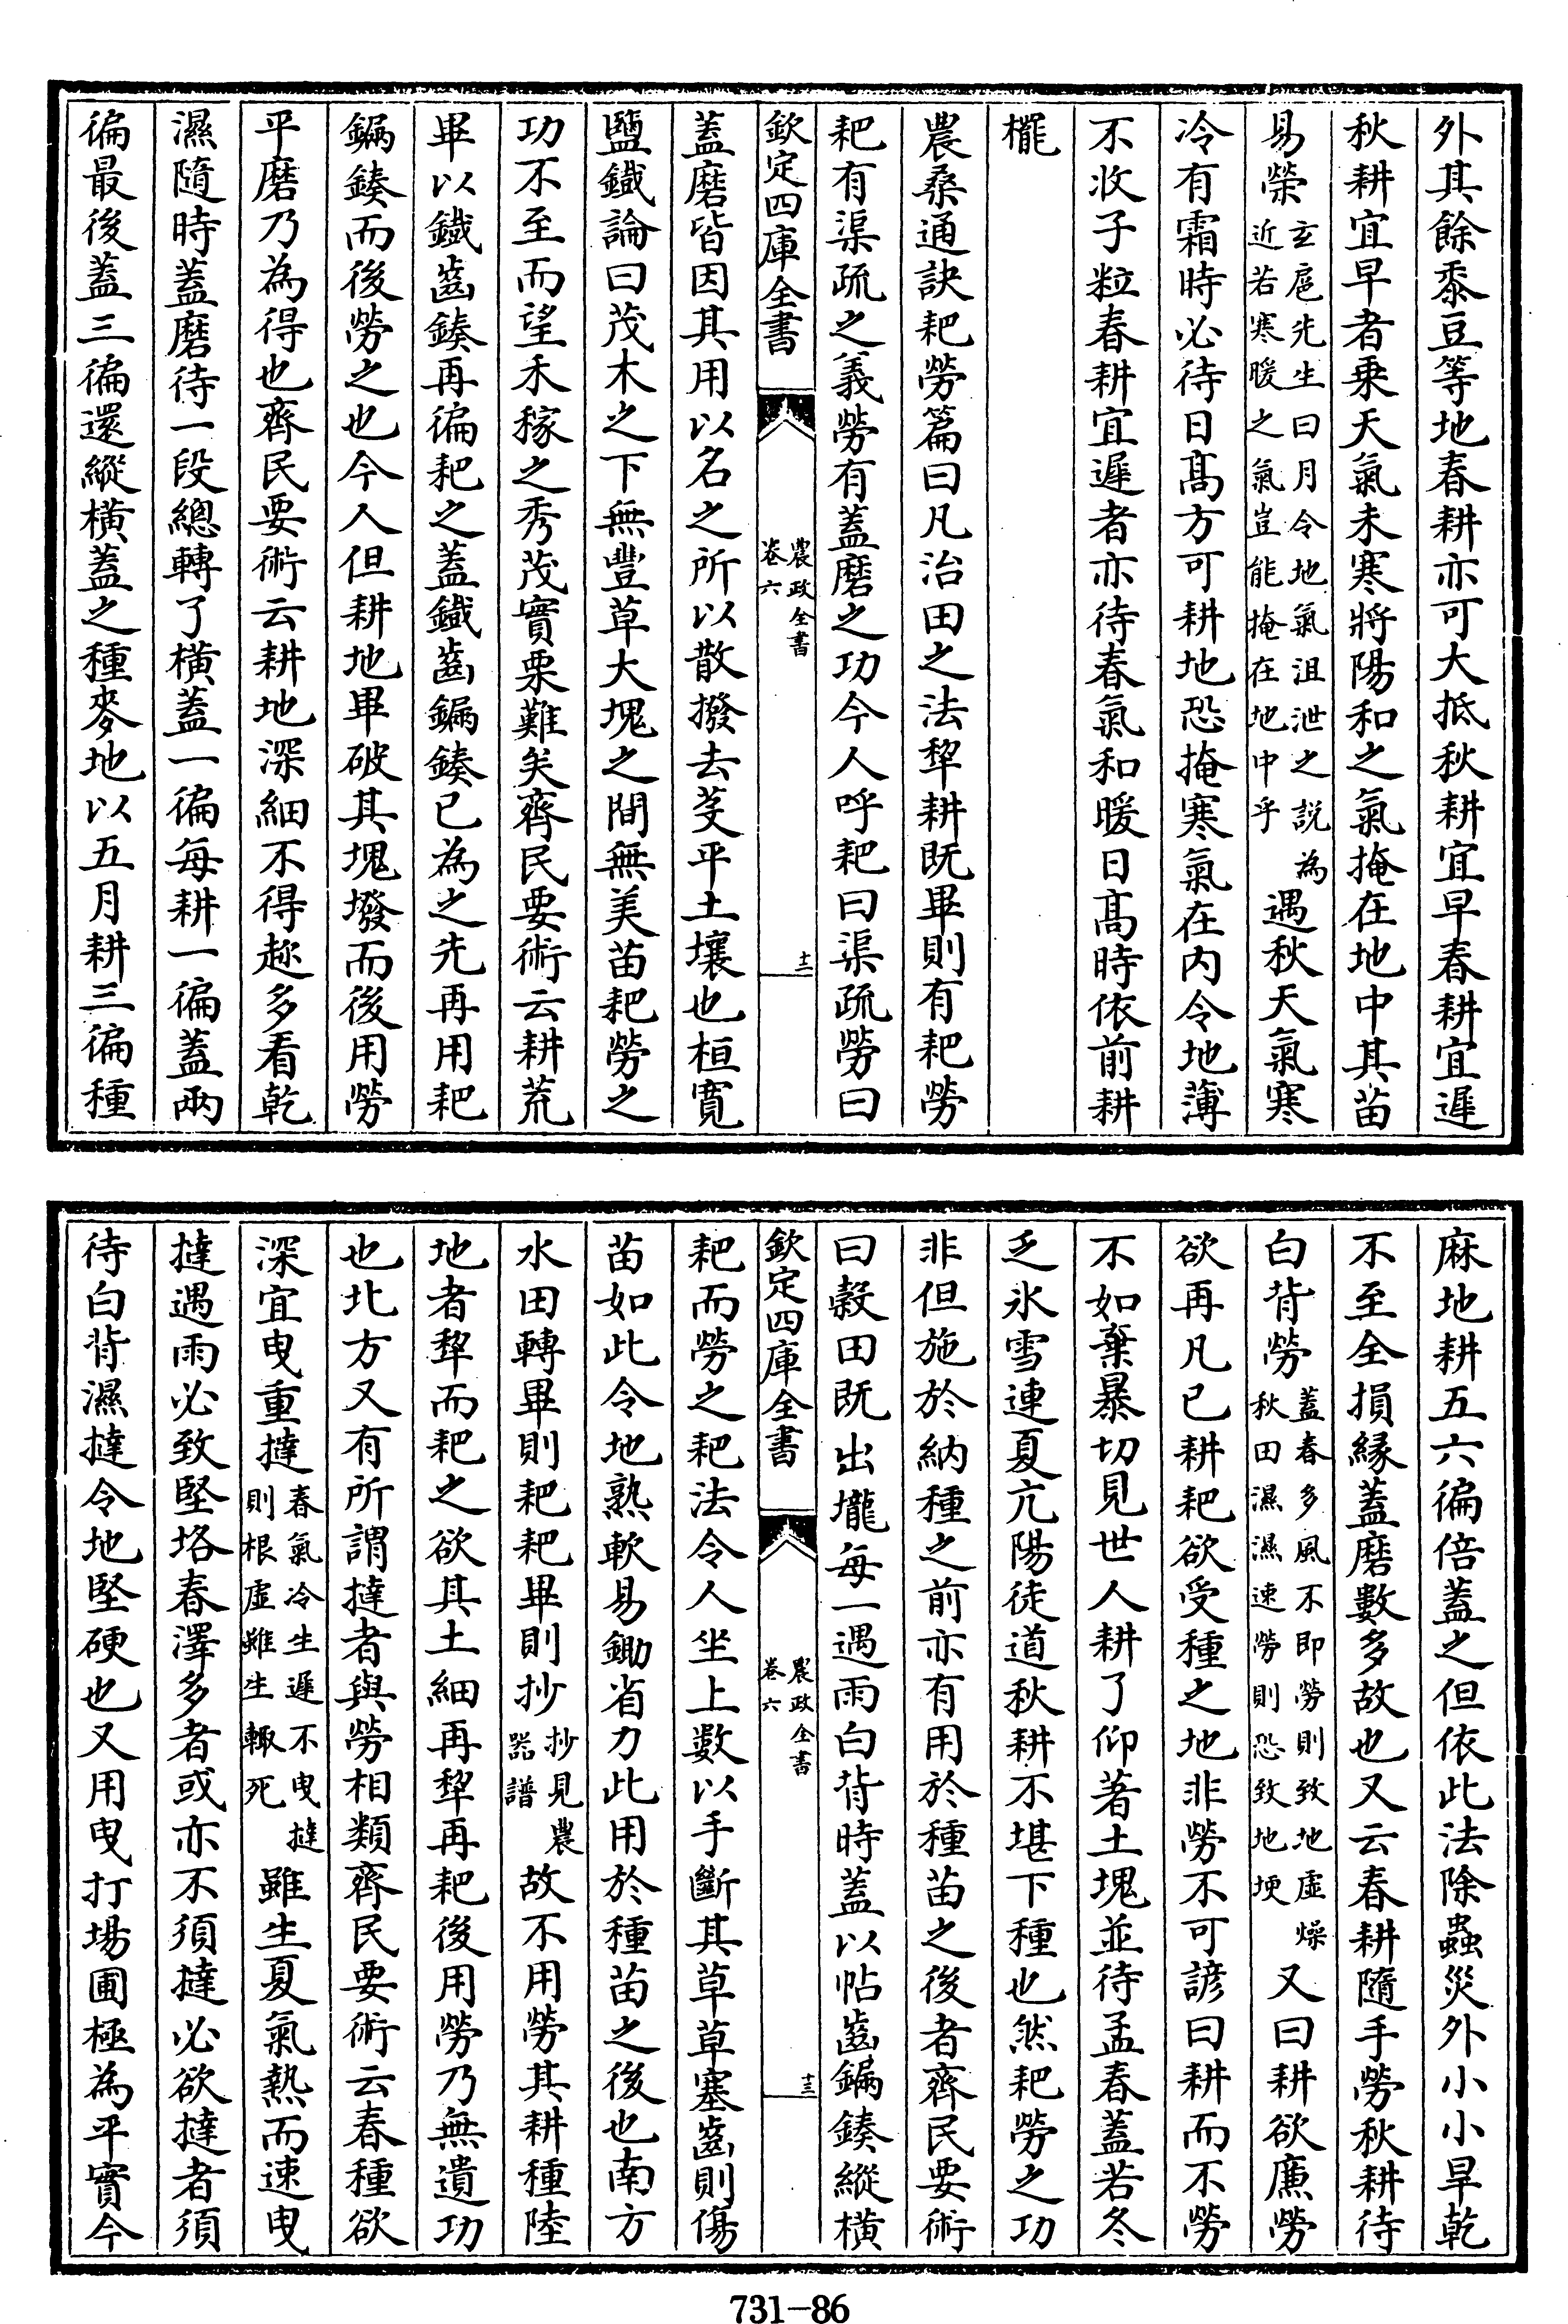 外其餘黍豆等地春耕亦可大抵秋耕宜早春耕宜遲
秋耕宜早者乗天氣未寒將陽和之氣掩在地中其苗
易榮玄扈先生曰月令地氣沮泄之說為近若寒暖之氣豈能掩在地中乎遇秋天氣寒
冷有霜時必待日髙方可耕地恐掩寒氣在内令地薄
不收子粒春耕宜遲者亦待春氣和暖日髙時依前耕
擺
農桑通訣耙勞篇曰凡治田之法犂耕既畢則有耙勞
耙有渠疏之義勞有蓋磨之功今人呼耙曰渠疏勞曰
欽定四庫全書
農政全書
卷六
十二
蓋磨皆因其用以名之所以散撥去芟平土壤也桓寛
鹽鐡論曰茂木之下無豐草大塊之間無美苗耙勞之
功不至而望禾稼之秀茂實栗難矣齊民要術云耕荒
畢以鐡齒鍐再徧耙之蓋鐡齒鍽鍐已為之先再用耙
鍽鍐而後勞之也今人但耕地畢破其塊墢而後用勞
平磨乃為得也齊民要術云耕地深細不得趂多看乾
濕隨時蓋磨待一段總轉了横蓋一徧每耕一徧蓋兩
徧最後蓋三徧還縱横蓋之種麥地以五月耕三徧種
麻地耕五六徧倍蓋之但依此法除蟲災外小小旱乾
不至全損縁蓋磨數多故也又云春耕隨手勞秋耕待
白背勞蓋春多風不即勞則致地虛燥秋田濕濕速勞則恐致地埂又曰耕欲亷勞
欲再凡已耕耙欲受種之地非勞不可諺曰耕而不勞
不如棄暴切見世人耕了仰著土塊並待孟春蓋若冬
乏氷雪連夏亢陽徒道秋耕不堪下種也然耙勞之功
非但施於納種之前亦有用於種苗之後者齊民要術
曰榖田既出壠每一遇雨白背時蓋以帖齒鍽鍐縱横
欽定四庫全書
農政全書
卷六
十三
耙而勞之耙法令人坐上數以手斷其草草塞齒則傷
苗如此令地熟軟易鋤省力此用於種苗之後也南方
水田轉畢則耙耙畢則抄抄見農器譜故不用勞其耕種陸
地者犂而耙之欲其土細再犂再耙後用勞乃無遺功
也北方又有所謂撻者與勞相類齊民要術云春種欲
深宜曳重撻春氣冷生遲不曳撻則根虛雖生輙死雖生夏氣熱而速曳
撻遇雨必致堅垎春澤多者或亦不須撻必欲撻者須
待白背濕撻令地堅硬也又用曳打場圃極為平實今
731-86